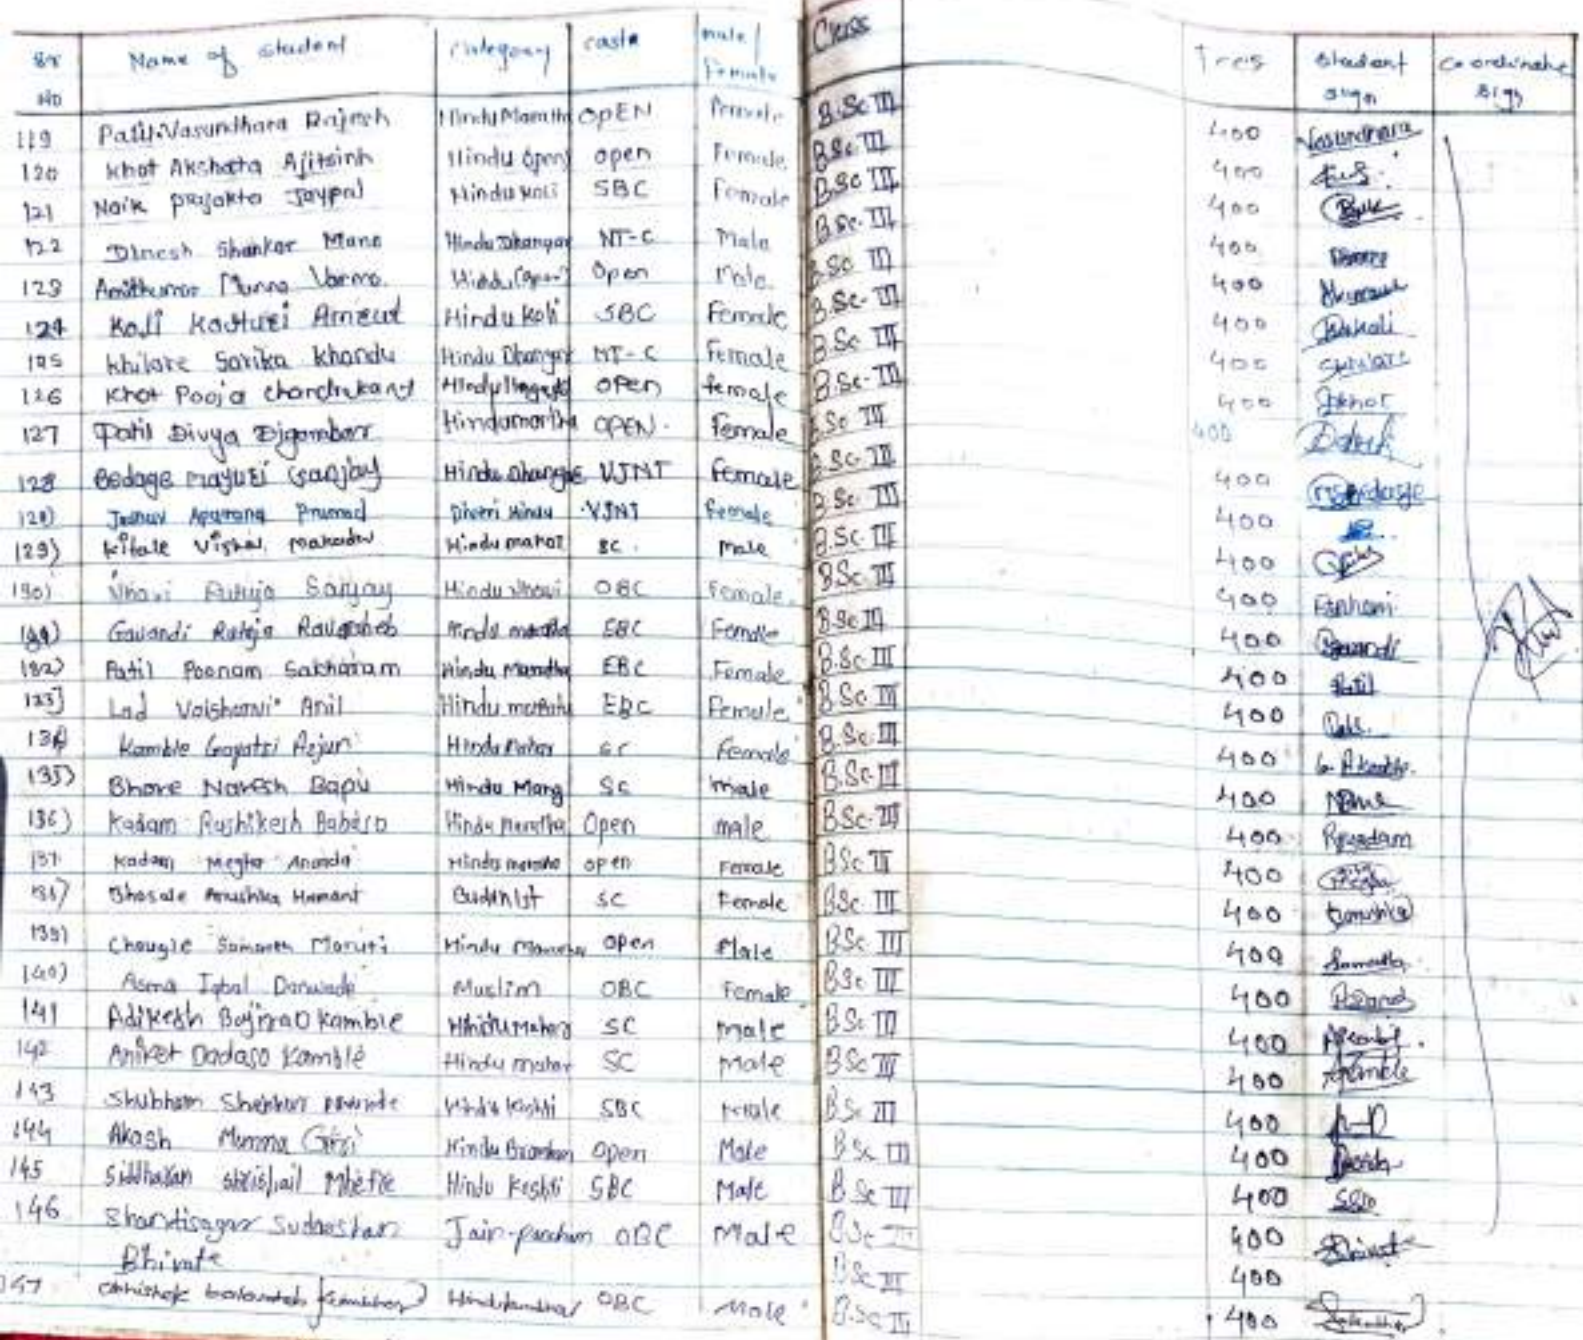 Sr No Name of student Category caste male/Female Class Fees Student sign Co-ordinate sign
119 Patil Vasundhara Rajesh Hindu Marath OPEN Female B.Sc III 400 Vasundhara
120 Khot Akshata Ajitsinh Hindu open open Female B.Sc III 400
121 Naik prajakta Jaypal Hindu Koli SBC Female B.Sc III 400
122 Dinesh Shankar Mane Hindu Dhangar NT-C Male B.Sc. III 400
123 Amitkumar Munna Varma Hindu (open) Open Male B.Sc III 400
124 Koli Kasturi Amrut Hindu Koli SBC Female B.Sc- III 400
125 Khilare Sarika Khandu Hindu Dhangar NT-C Female B.Sc III 400
126 Khot Pooja chandrakant Hindu open female B.Sc- III 400 Pkhot
127 Patil Divya Digambar Hindumartha OPEN. Female B.Sc III 400
128 Bedage Mayuri Sanjay Hindu Dhangar VJNT Female B.Sc- III 400
128) Jadhav Aparana Pramod Hindu VJNT Female B.Sc. III 400
129) Kitale Vishal Mahadev Hindu mahar SC. Male B.Sc III 400
130) Nhavi Rutuja Sanjay Hindu Nhavi OBC Female. B.Sc- III 400
131) Gavandi Rutuja Ravasheb Hindu maratha EBC Female B.Sc III 400 Rgavandi
132) Patil Poonam Sakharam Hindu Maratha EBC Female B.Sc III 400 Patil
133] Lad Vaishanvi Anil Hindu maratha EBC Female B.Sc III 400
134 Kamble Gayatri Arjun Hindu Mahar SC Female B.Sc. III 400
135) Bhore Naresh Bapu Hindu Mang SC male B.Sc- III 400
136) Kadam Rushikesh Babaso Hindu Maratha Open male B.Sc- III 400
137 Kadam Megha Ananda Hindu maratha open Female B.Sc III 400 Megha
138) Bhosale Anushka Hemant Buddhist SC Female B.Sc III 400 Anushka
139) Chougle Samarth Maruti Hindu Maratha open Male B.Sc III 400 Samarth
140) Asma Iqbal Danwade Muslim OBC Female B.Sc III 400
141 Adikesh Bajirao Kamble Hindu Mahar SC male B.Sc III 400
142 Aniket Dadaso Kamble Hindu mahar SC Male B.Sc III 400 Akamble
143 Shubham Shankar Hindu Koshti SBC Male B.Sc III 400
144 Akash Munna Giri Hindu Bramhan Open Male B.Sc III 400
145 Siddharam shrishail Mhetre Hindu Koshti SBC Male B.Sc III 400
146 Shantisagar Sudarshan Jain-pancham OBC Male B.Sc III 400
Bhivate B.Sc III 400
147 abhishek balavant kumbhar Hindu kumbhar OBC Male B.Sc III 400